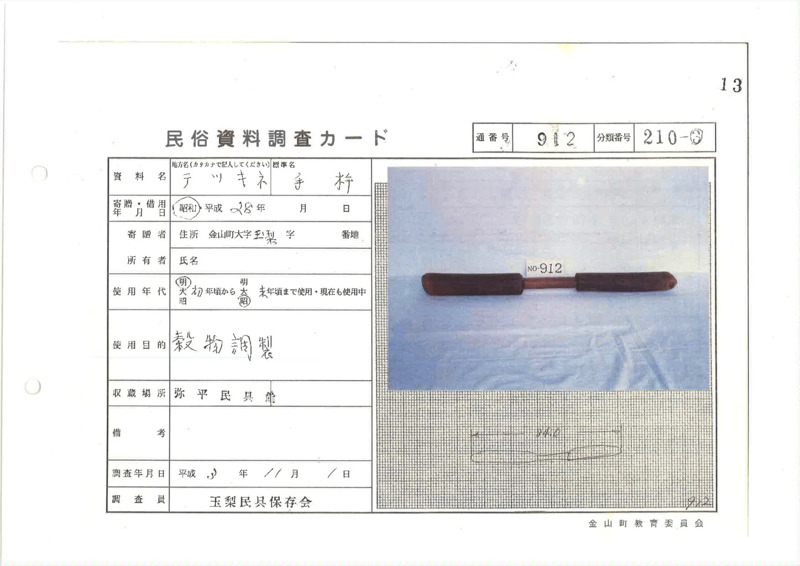 13
民俗資料調査カード
通番号 912 分類番号 210-
資料名 地方名(カタカナで記入してください) 標準名
テツキネ 手杵
寄贈・借用年月日 昭和 平成 28年 月 日
寄贈者 住所 金山町大字玉梨字 番地
所有者 氏名
使用年代 明大昭 初年頃から 明大昭 末年頃まで使用・現在も使用中
使用目的 穀物調製
収蔵場所 弥平民具館
備考
調査年月日 平成 3年 11月 1日
調査員 玉梨民具保存会
NO-912
94.0
912
金山町教育委員会